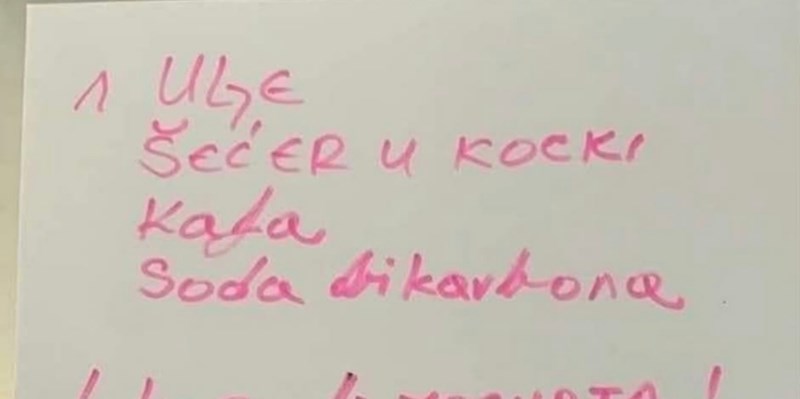 1 ULJE
ŠEĆER U KOCKI
Kafa
Soda bikarbona